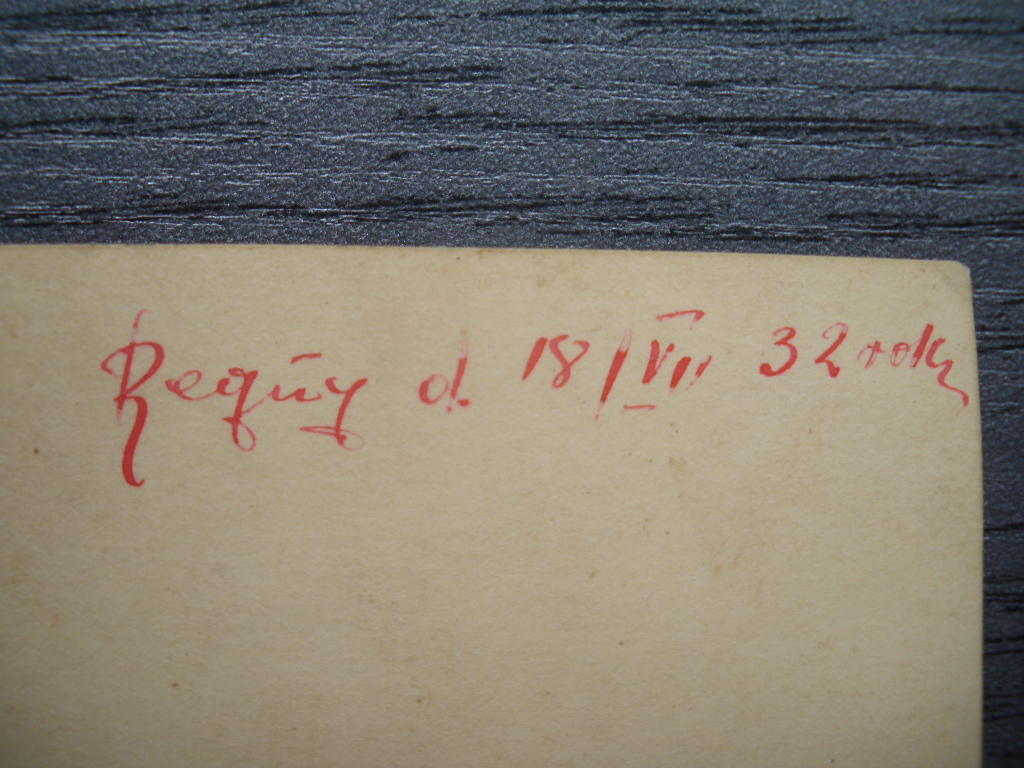 Reguły d. 18/VII 32 roku